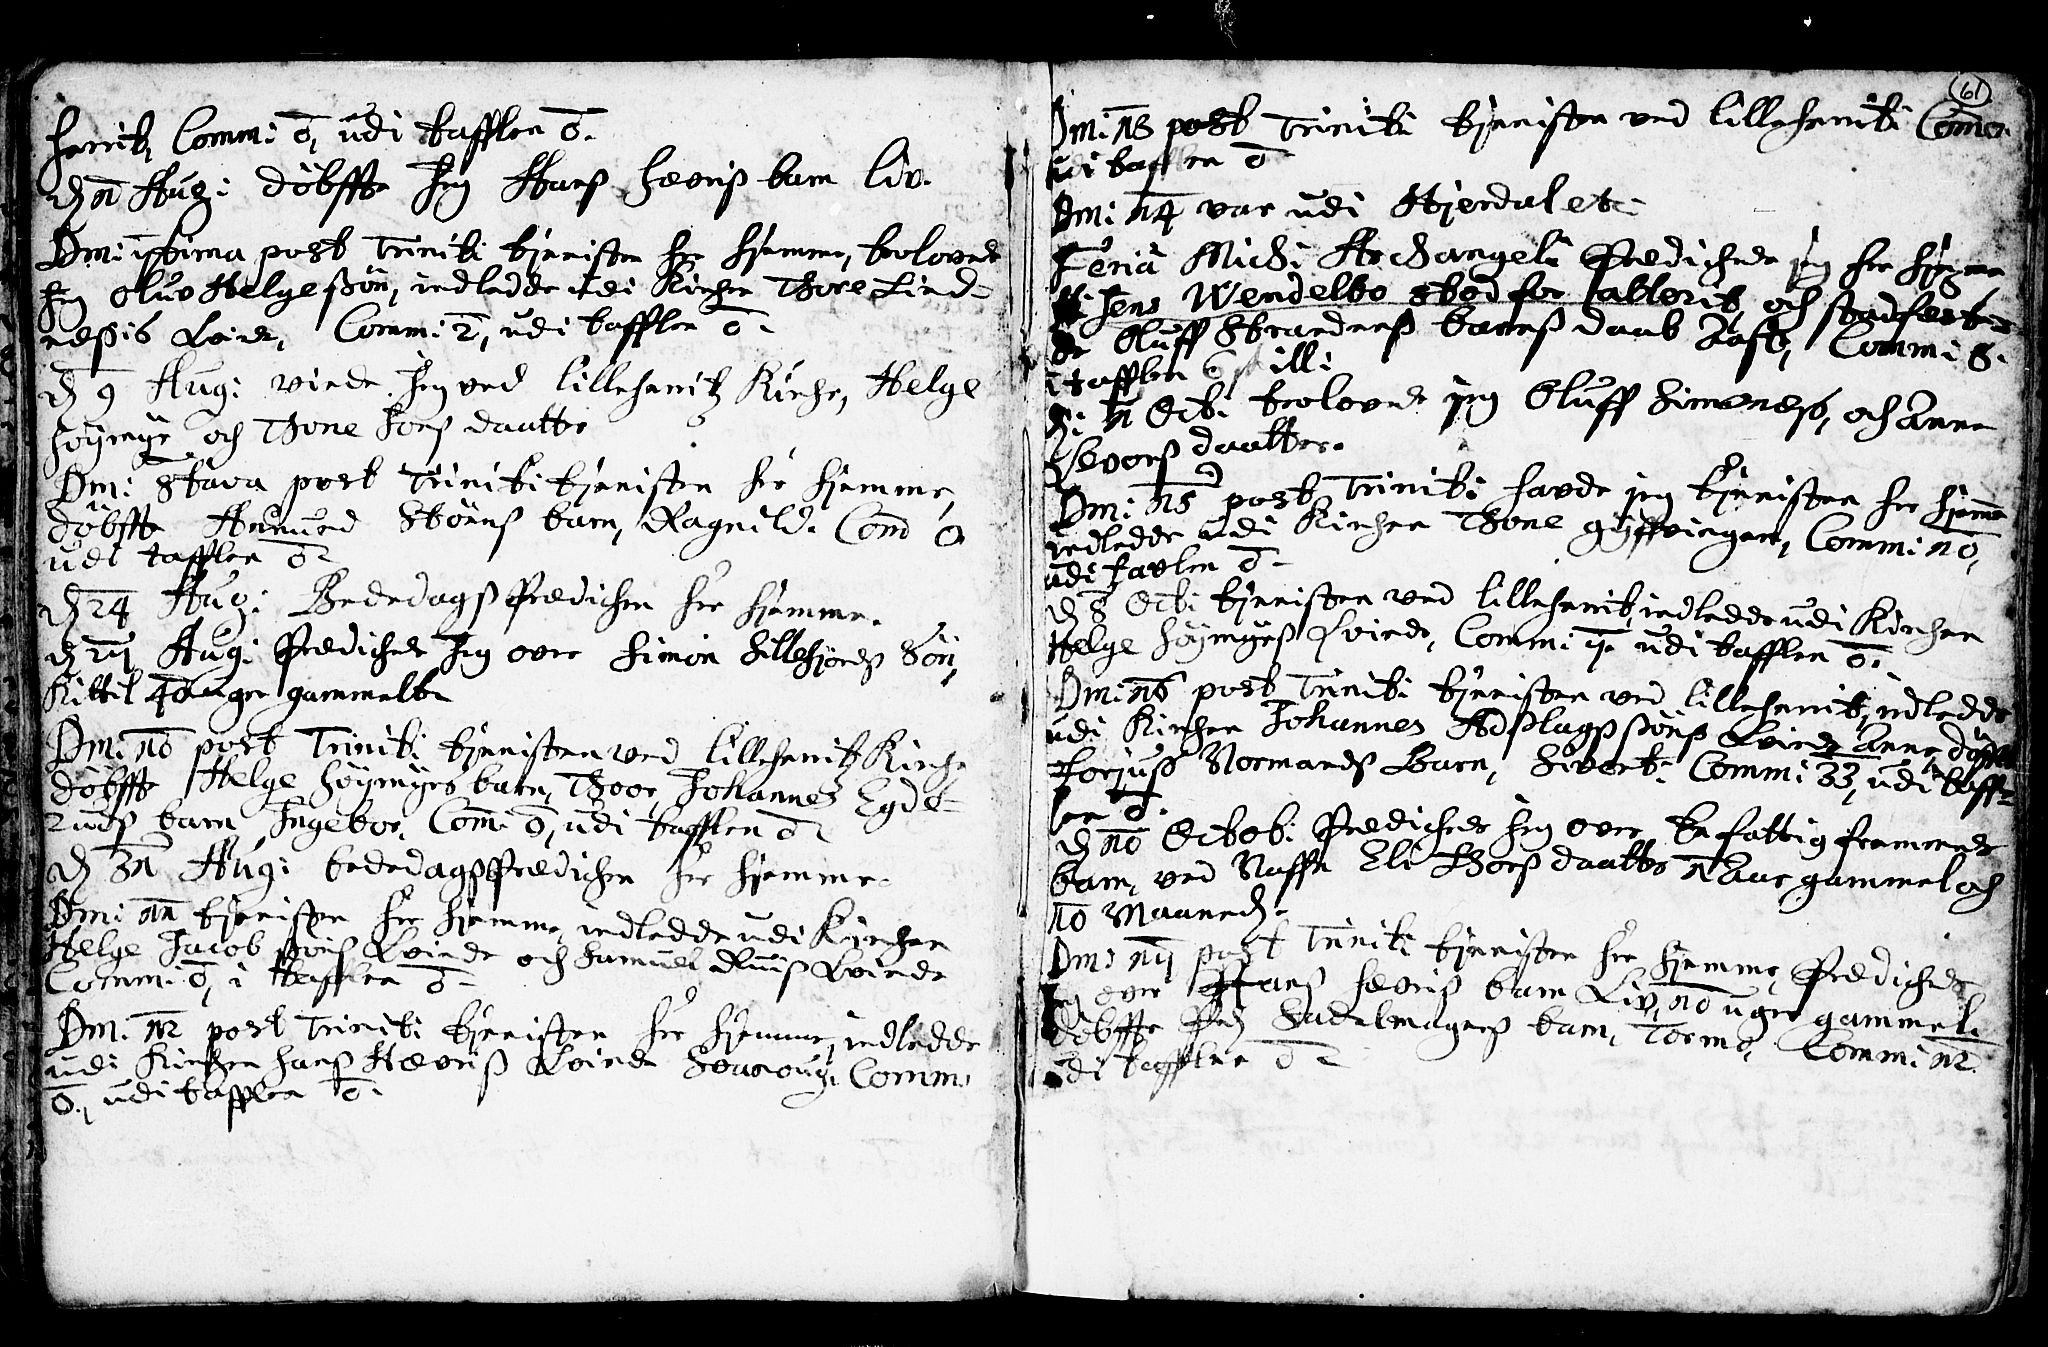 herrit, Commi: 0, udi tafflen 0.
D 1 Aug: döbffte Jeg Hans Hæriß barn Liv.
Dmi: 7ptima post Triniti tjenisten her hjemme, trolovede
Jeg Oluv Helgesön, indledde udi Kirken Thore Lind-
neßis Qvinde, Commi: 2, udi tafflen 0.
D 9 Aug: viede Jeg ved Lilleherritz Kirche, Helge
Höymyr och Thone Torß daatter
Dmi: 8tava post Triniti tjenisten her hjemme,
döbffte Anmund Störiß barn, Ragnild. Com̄ 0
udi tafflen 0
D 24 Aug: Bededagß Prædichen her hjemme.
D 27 Aug: Prædichede Jeg over Simon Sillehjordß Sön,
Kittil 40 uger gammell.
Dmi: 10 post Triniti tjenisten ved Lilleherritz Kirche
döbffte Helge Höymyrs barn, Thor, Johannes Egde-
rudß barn Ingebor, Com: 0, udi tafflen 0
D 31 Aug: bededagß Prædichen her hjemme.
Dmi: 11 tjenisten her hjemme, indledde udi Kirchen
Helge Jacobsöns Qvinde och Samuel Quiß Qvinde
Commi: 0, i tafflen 0
Dmi: 12 post Triniti tjenisten her hjemme, indledde
udi Kirchen Hanß Hæriß Qvinde Commi
0., udi tafflen 0.
61
Dmi: 13 post Triniti tjenisten ved Lilleherrit Com̄ 0.
udi tafflen 0
Dmi: 14 var udi Hjerdalet
Feria Mich: Archangeli Prædichede jeg her hjemme
Hr Jens Wendelbo stod for alterit, och stadfæstede
Oluff Strandenß barnß daab Commi: 8.
i tafflen 6 ß illi
D: 1 Octb: trolovede jeg Oluff Simoneß, och Anne
Sevorß daatter.
Dmi: 15 post Triniti havde jeg tjenisten her hjemme
indledde udi Kirchen Thone Gisffvingen, Commi: 10,
udi tavlen 0
D 8 Octbi tjenisten ved Lilleherrit, indledde udi Kirchen
Helge Höymyrß Qvinde, Commi: 7. udi tafflen 0.
Dmi: 16 post Triniti tjenisten ved Lilleherrit, indledde
udi Kirchen Johannes Aßlagßsönß Qvinde Anne, döbfte
Torjuß Normandß Barn, Sivert. Commi: 33, udi taff-
len 0.
D 10 Octob: Prædichede Jeg over en fattig fremmede
barn, ved Naffn Eli Thorß daatter 1 Aar gammel och
10 Maaneder.
Dmi: 17 post Triniti tjenisten her hjemme, Prædichede
jeg over Hanß Hæriß barn Liv, 10 uger gammel.
döbffte Peder Sadelmagerß barn, Tormo, Commi: 12
udi tafflen 0